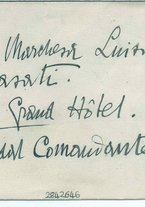 Marchesa Luisa
Casati.
Grand Hôtel.
dal Comandante
2842646